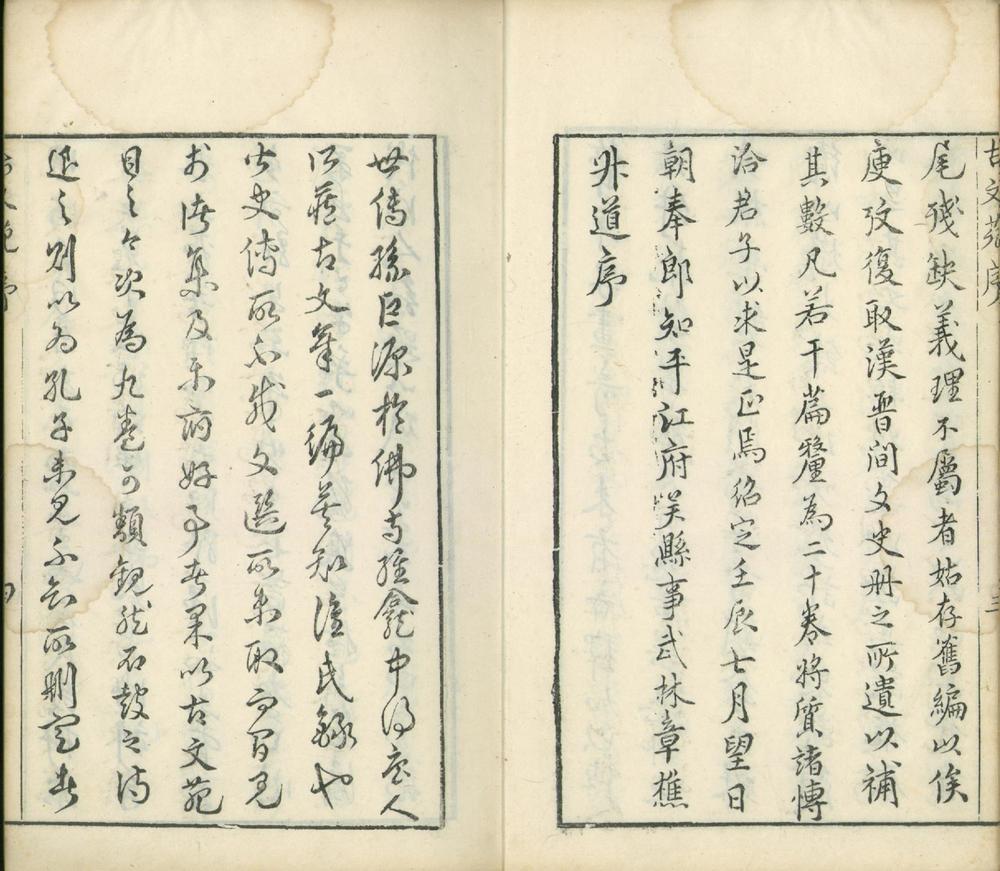 古文苑序
尾殘缺義理不屬者姑存舊編以俟
庾攷復取漢晉間文史冊之所遺以補
其數凡若干篇釐為二十卷將質諸博
洽君子以求是正焉紹定壬辰七月望日
朝奉郎知平江府吳縣事武林章樵
升道序
世傳孫巨源於佛寺經龕中得唐人
所藏古文章一編莫知誰氏錄也
皆史傳所不載文選所未取而間見
於諸集及樂府好事者果以古文苑
目之今次為九卷可類觀然石鼓之詩
退之則以為孔子未見不知所刪定者